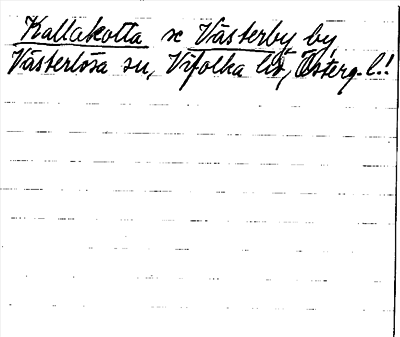 Kallakotta se Västerby by
Västerlösa sn, Vifolka hd, Österg. l.!